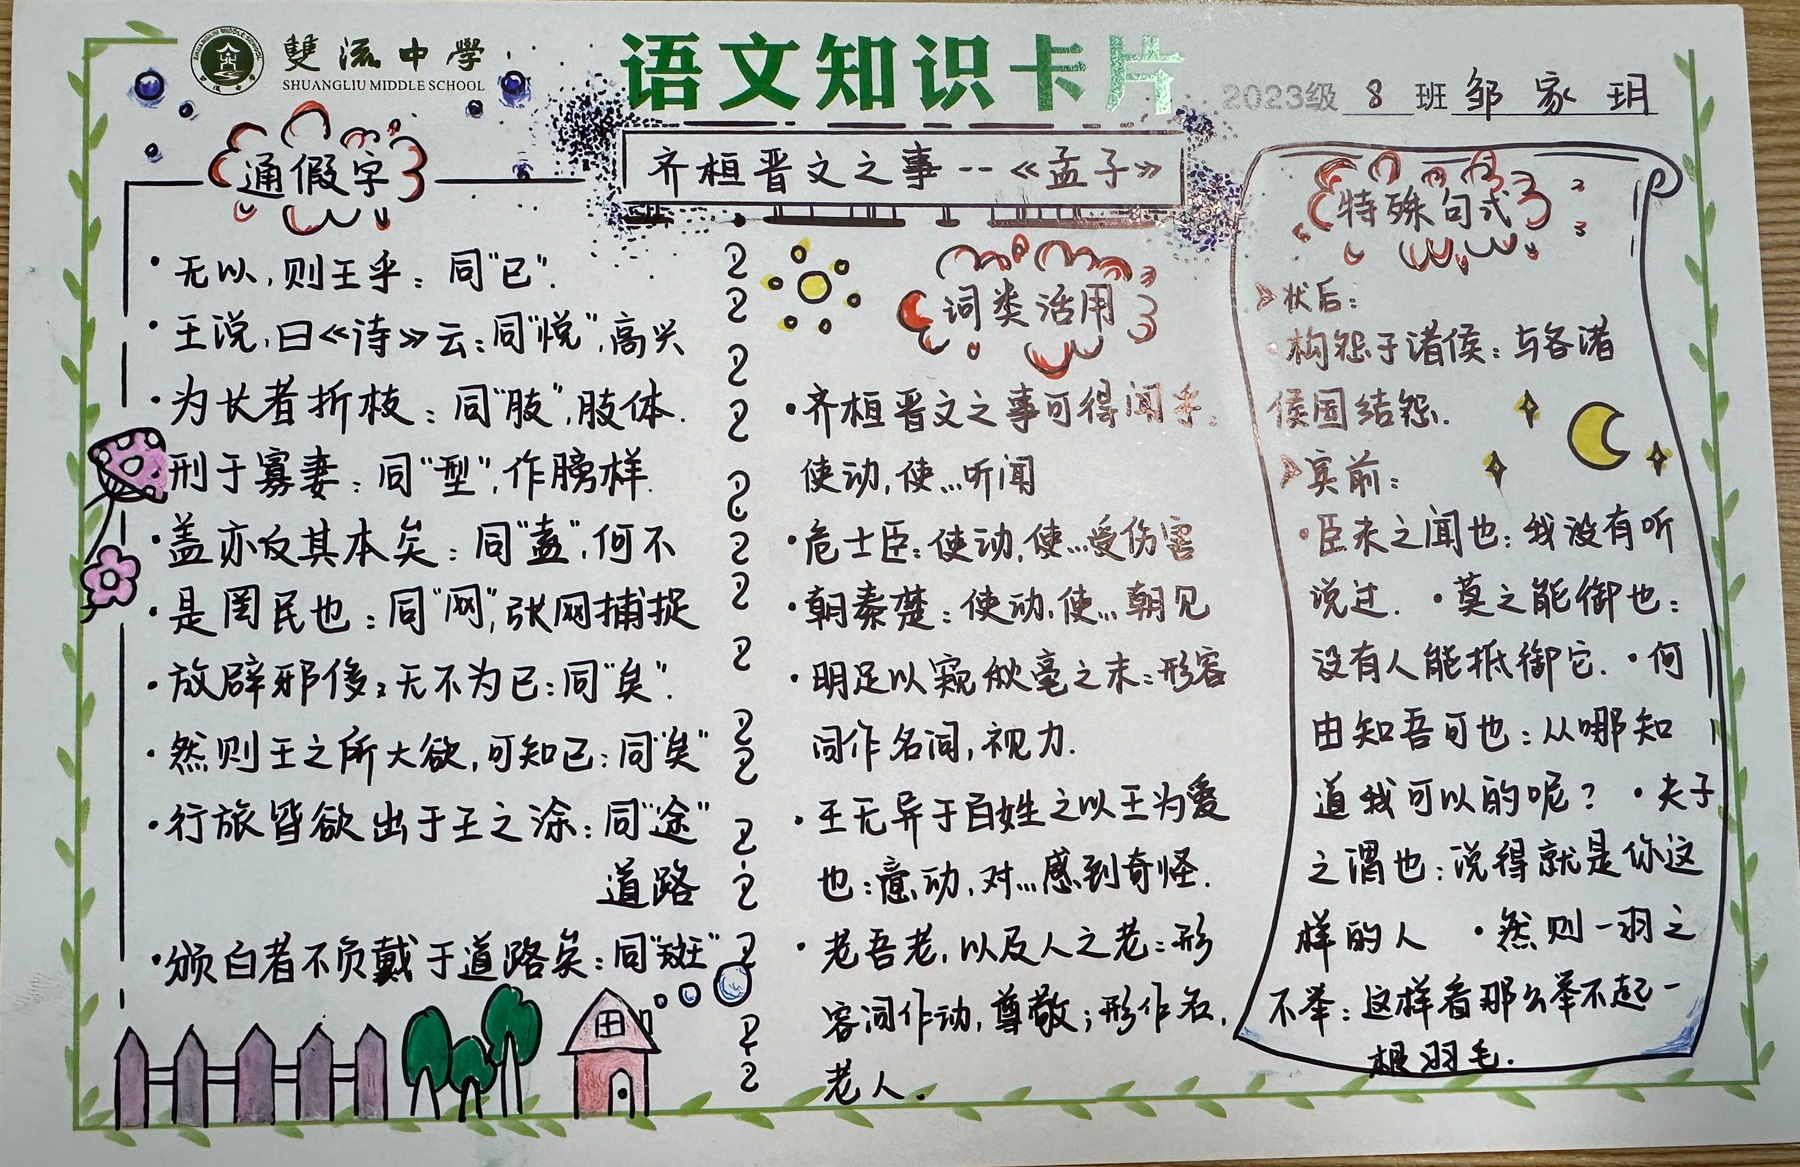 雙流中學
SHUANGLIU MIDDLE SCHOOL
语文知识卡片
2023级 8 班 邹家玥
齐桓晋文之事--《孟子》
通假字
·无以,则王乎:同"已".
·王说,曰《诗》云:同"悦",高兴
·为长者折枝:同"肢",肢体.
·刑于寡妻:同"型",作膀样.
·盖亦反其本矣:同"盍",何不
·是罔民也:同"网",张网捕捉
·放辟邪侈,无不为已:同"矣".
·然则王之所大欲,可知已:同"矣"
·行旅皆欲出于王之涂:同"途"
道路
·颁白者不负戴于道路矣:同"斑"
词类活用
·齐桓晋文之事可得闻乎:
使动,使...听闻
·危士臣:使动,使...受伤害
·朝秦楚:使动,使...朝见
·明足以窥秋毫之末:形容
词作名词,视力.
·王无异于百姓之以王为爱
也:意动,对...感到奇怪.
·老吾老,以及人之老:形
容词作动,尊敬;形作名,
老人.
特殊句式
状后:
·构怨于诸侯:与各诸
侯国结怨.
宾前:
·臣未之闻也:我没有听
说过.·莫之能御也:
没有人能抵御它.·何
由知吾可也:从哪知
道我可以的呢?·夫子
之谓也:说得就是你这
样的人 ·然则一羽之
不举:这样看那么举不起一
根羽毛.